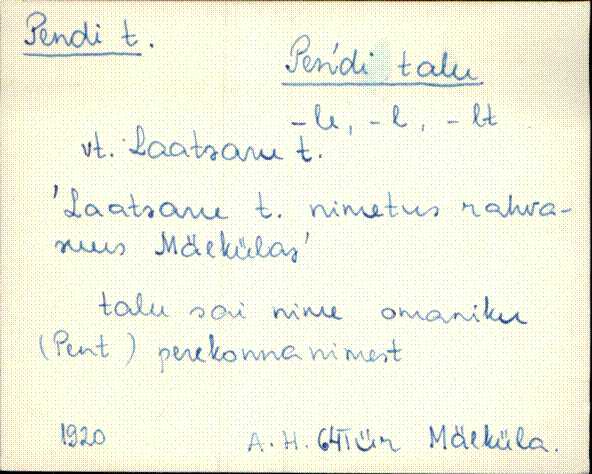 Pendi t.
Peńdi talu
-le, -l, -lt
vt. Laatsanu t.
'Laatsanu t. nimetus rahva-
suus Mäekülas'
talu sai nime omaniku
(Pent) perekonnanimest
1920 A. H. 64 Tür Mäeküla.